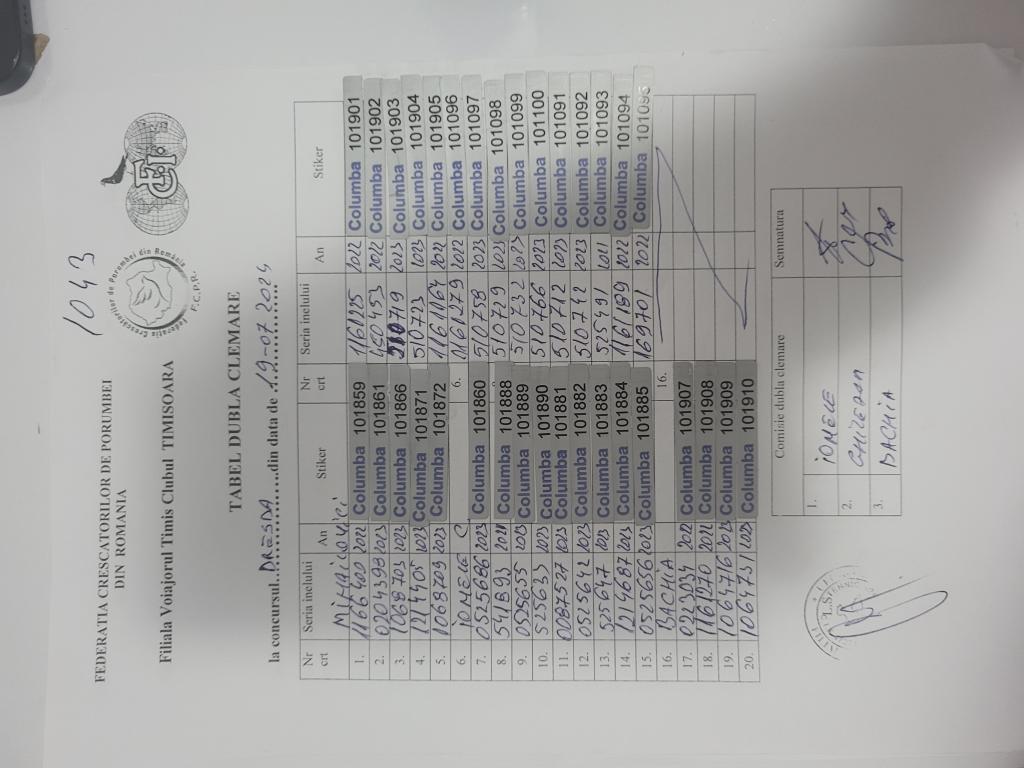 1043
FEDERATIA CRESCATORILOR DE PORUMBEI
DIN ROMANIA
Federatia Crescatorilor de Porumbei din România
F.C.P.R.
Filiala Voiajorul Timis Clubul TIMISOARA
TABEL DUBLA CLEMARE
la concursul..DRESDA.............din data de 19-07 2024
Nr crt Seria inelului An Stiker Nr crt Seria inelului An Stiker
1. 1166400 2022 Columba 101859 1161125 2022 Columba 101901
2. 0204399 2023 Columba 101861 450453 2022 Columba 101902
3. 1068703 2023 Columba 101866 510719 2023 Columba 101903
4. 1214405 2023 Columba 101871 510723 2023 Columba 101904
5. 1068709 2023 Columba 101872 1161164 2022 Columba 101905
6. IOMELE C 6. 1161279 2022 Columba 101096
7. 0525686 2023 Columba 101860 510759 2023 Columba 101097
8. 541893 2021 Columba 101888 510729 2023 Columba 101098
9. 0525655 2023 Columba 101889 510732 2023 Columba 101099
10. 525633 2023 Columba 101890 510766 2023 Columba 101100
11. 0087527 2023 Columba 101881 510712 2023 Columba 101091
12. 0525642 2023 Columba 101882 510742 2023 Columba 101092
13. 525647 2023 Columba 101883 525491 2011 Columba 101093
14. 1214687 2023 Columba 101884 1161189 2022 Columba 101094
15. 0525656 2023 Columba 101885 169701 2022 Columba 101095
16. BACHIA 16.
17. 0223034 2022 Columba 101907
18. 1161270 2022 Columba 101908
19. 1064716 2023 Columba 101909
20. 1064731 2023 Columba 101910
Comisie dubla clemare Semnatura
1. IOMELE
2.
3. BACHIA